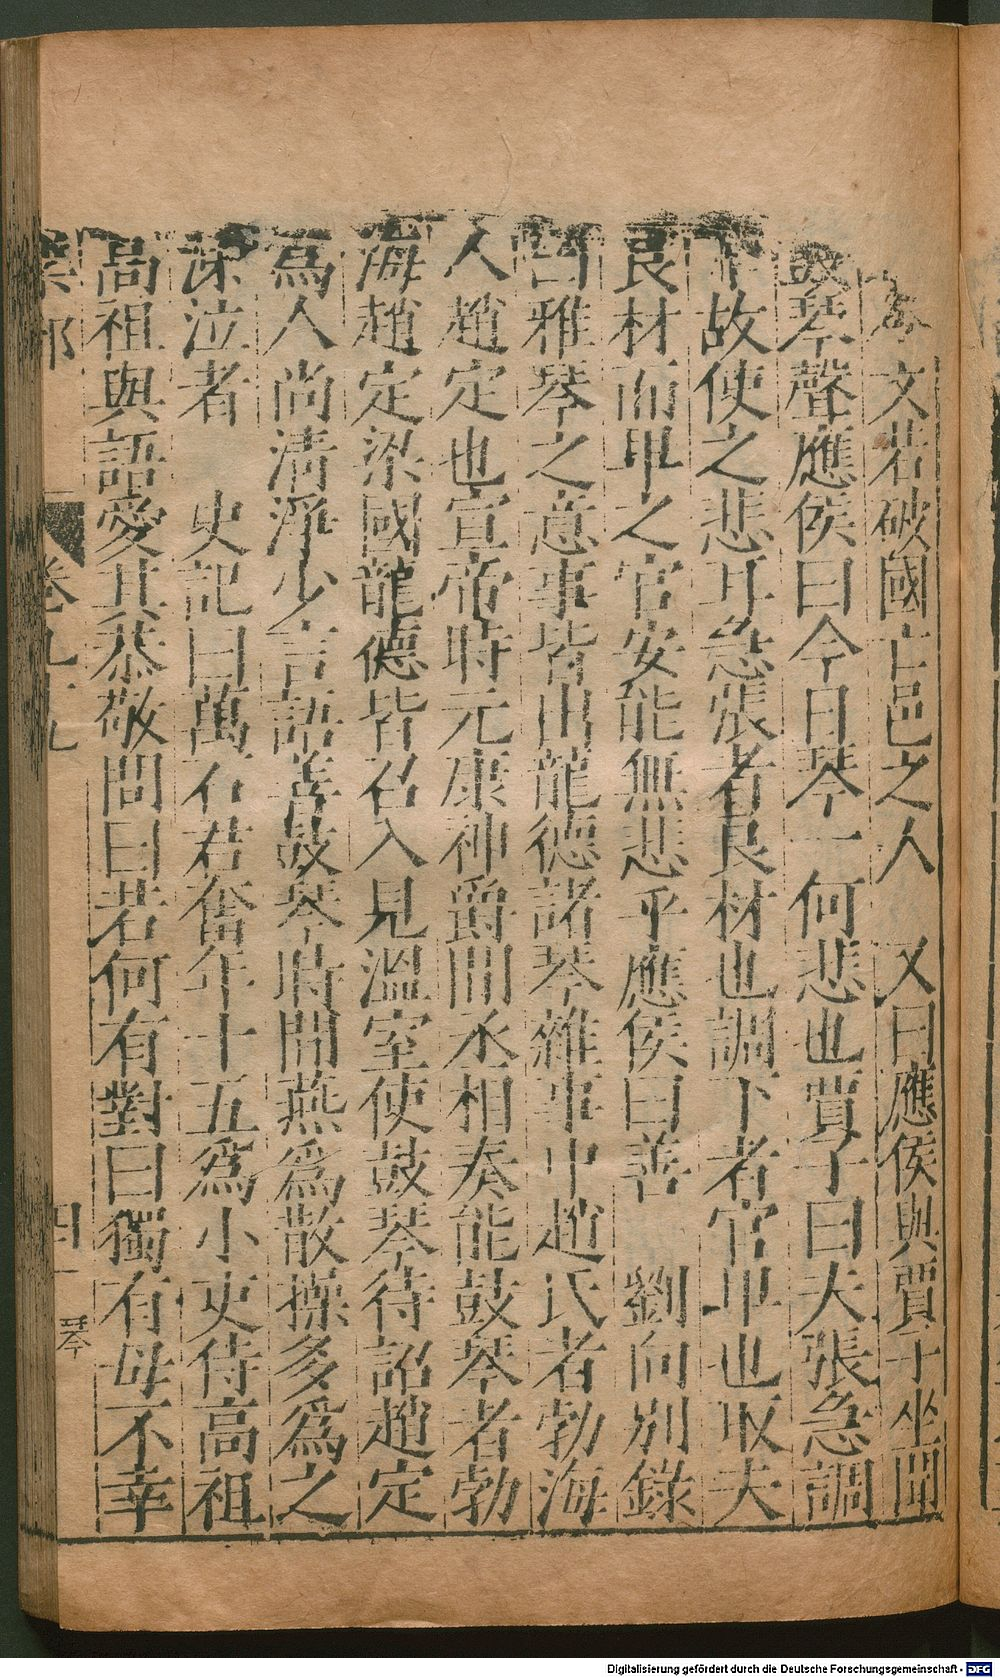 文若破國亡邑之人　又曰應侯與賈子坐聞
琴聲應侯曰今日琴一何悲也賈子曰夫張急調
下故使之悲耳急張者良材也調下者官卑也取夫
良材而卑之官安能無悲乎應侯曰善　劉向別錄
曰雅琴之意事皆出龍德諸琴雜事中趙氏者勃海
人趙定也宣帝時元康神爵間丞相奏能鼓琴者勃
海趙定梁國龍德皆召入見溫室使鼓琴待詔趙定
為人尚清淨少言語善鼓琴時間燕為散操多為之
涕泣者　史記曰萬石君奮年十五為小吏侍高祖
高祖與語愛其恭敬問曰若何有對曰獨有母不幸
卷九十九
四
琴
Digitalisierung gefördert durch die Deutsche Forschungsgemeinschaft - DFG